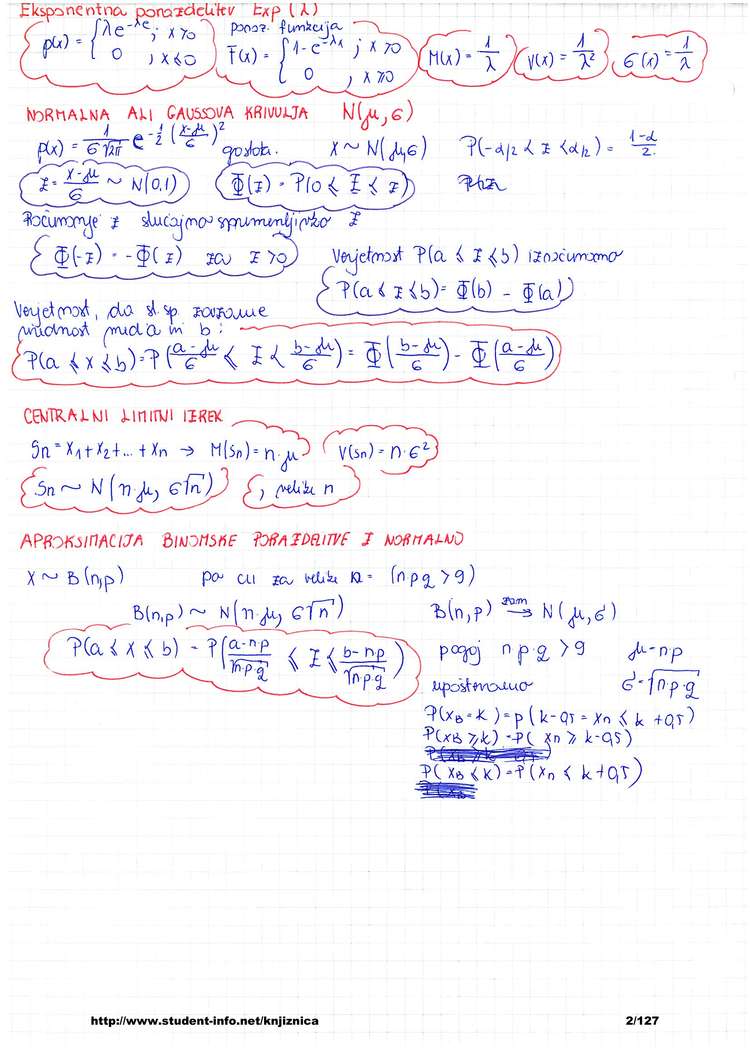 Eksponentna porazdelitev Exp (λ)
p(x) = { λe^-λe ; x>0
0 , x≤0
poraz. funkcija
F(x) = { 1-e^-λx ; x>0
0 , x≥0
M(x) = 1/λ
V(x) = 1/λ²
σ(x) = 1/λ
NORMALNA ALI GAUSSOVA KRIVULJA N(μ, σ)
p(x) = 1/(σ√2π) e^-½((x-μ)/σ)² gostota. X ~ N(μ, σ) P(-α/2 < Z < α/2) = (1-α)/2.
Z = (x-μ)/σ ~ N(0,1) Φ(z) = P(0 ≤ Z ≤ z)
Računanje z slučajno spremenljivko Z
Φ(-z) = -Φ(z) za z>0 Verjetnost P(a ≤ Z ≤ b) izračunamo
P(a ≤ Z ≤ b) = Φ(b) - Φ(a)
Verjetnost, da sl. sp. zavzame
vrednost med a in b :
P(a ≤ x ≤ b) = P((a-μ)/σ ≤ Z < (b-μ)/σ) = Φ((b-μ)/σ) - Φ((a-μ)/σ)
CENTRALNI LIMITNI IZREK
Sn = X1+X2+...+Xn → M(Sn) = n·μ V(Sn) = n·σ²
Sn ~ N(n·μ, σ√n) , veliki n
APROKSIMACIJA BINOMSKE PORAZDELITVE Z NORMALNO
X ~ B(n,p) po CLI za velike n = (n·p·q > 9)
B(n,p) ~ N(n·μ, σ√n) B(n,p) → N(μ, σ)
P(a ≤ X ≤ b) = P((a-np)/√n·p·q ≤ Z ≤ (b-np)/√n·p·q) pogoj n·p·q > 9 μ=np
upoštevamo σ=√n·p·q
P(XB = k) = p(k-0,5 = Xn ≤ k+0,5)
P(XB ≥ k) = P(Xn ≥ k-0,5)
P(XB ≤ k) = P(Xn ≤ k+0,5)
http://www.student-info.net/knjiznica 2/127